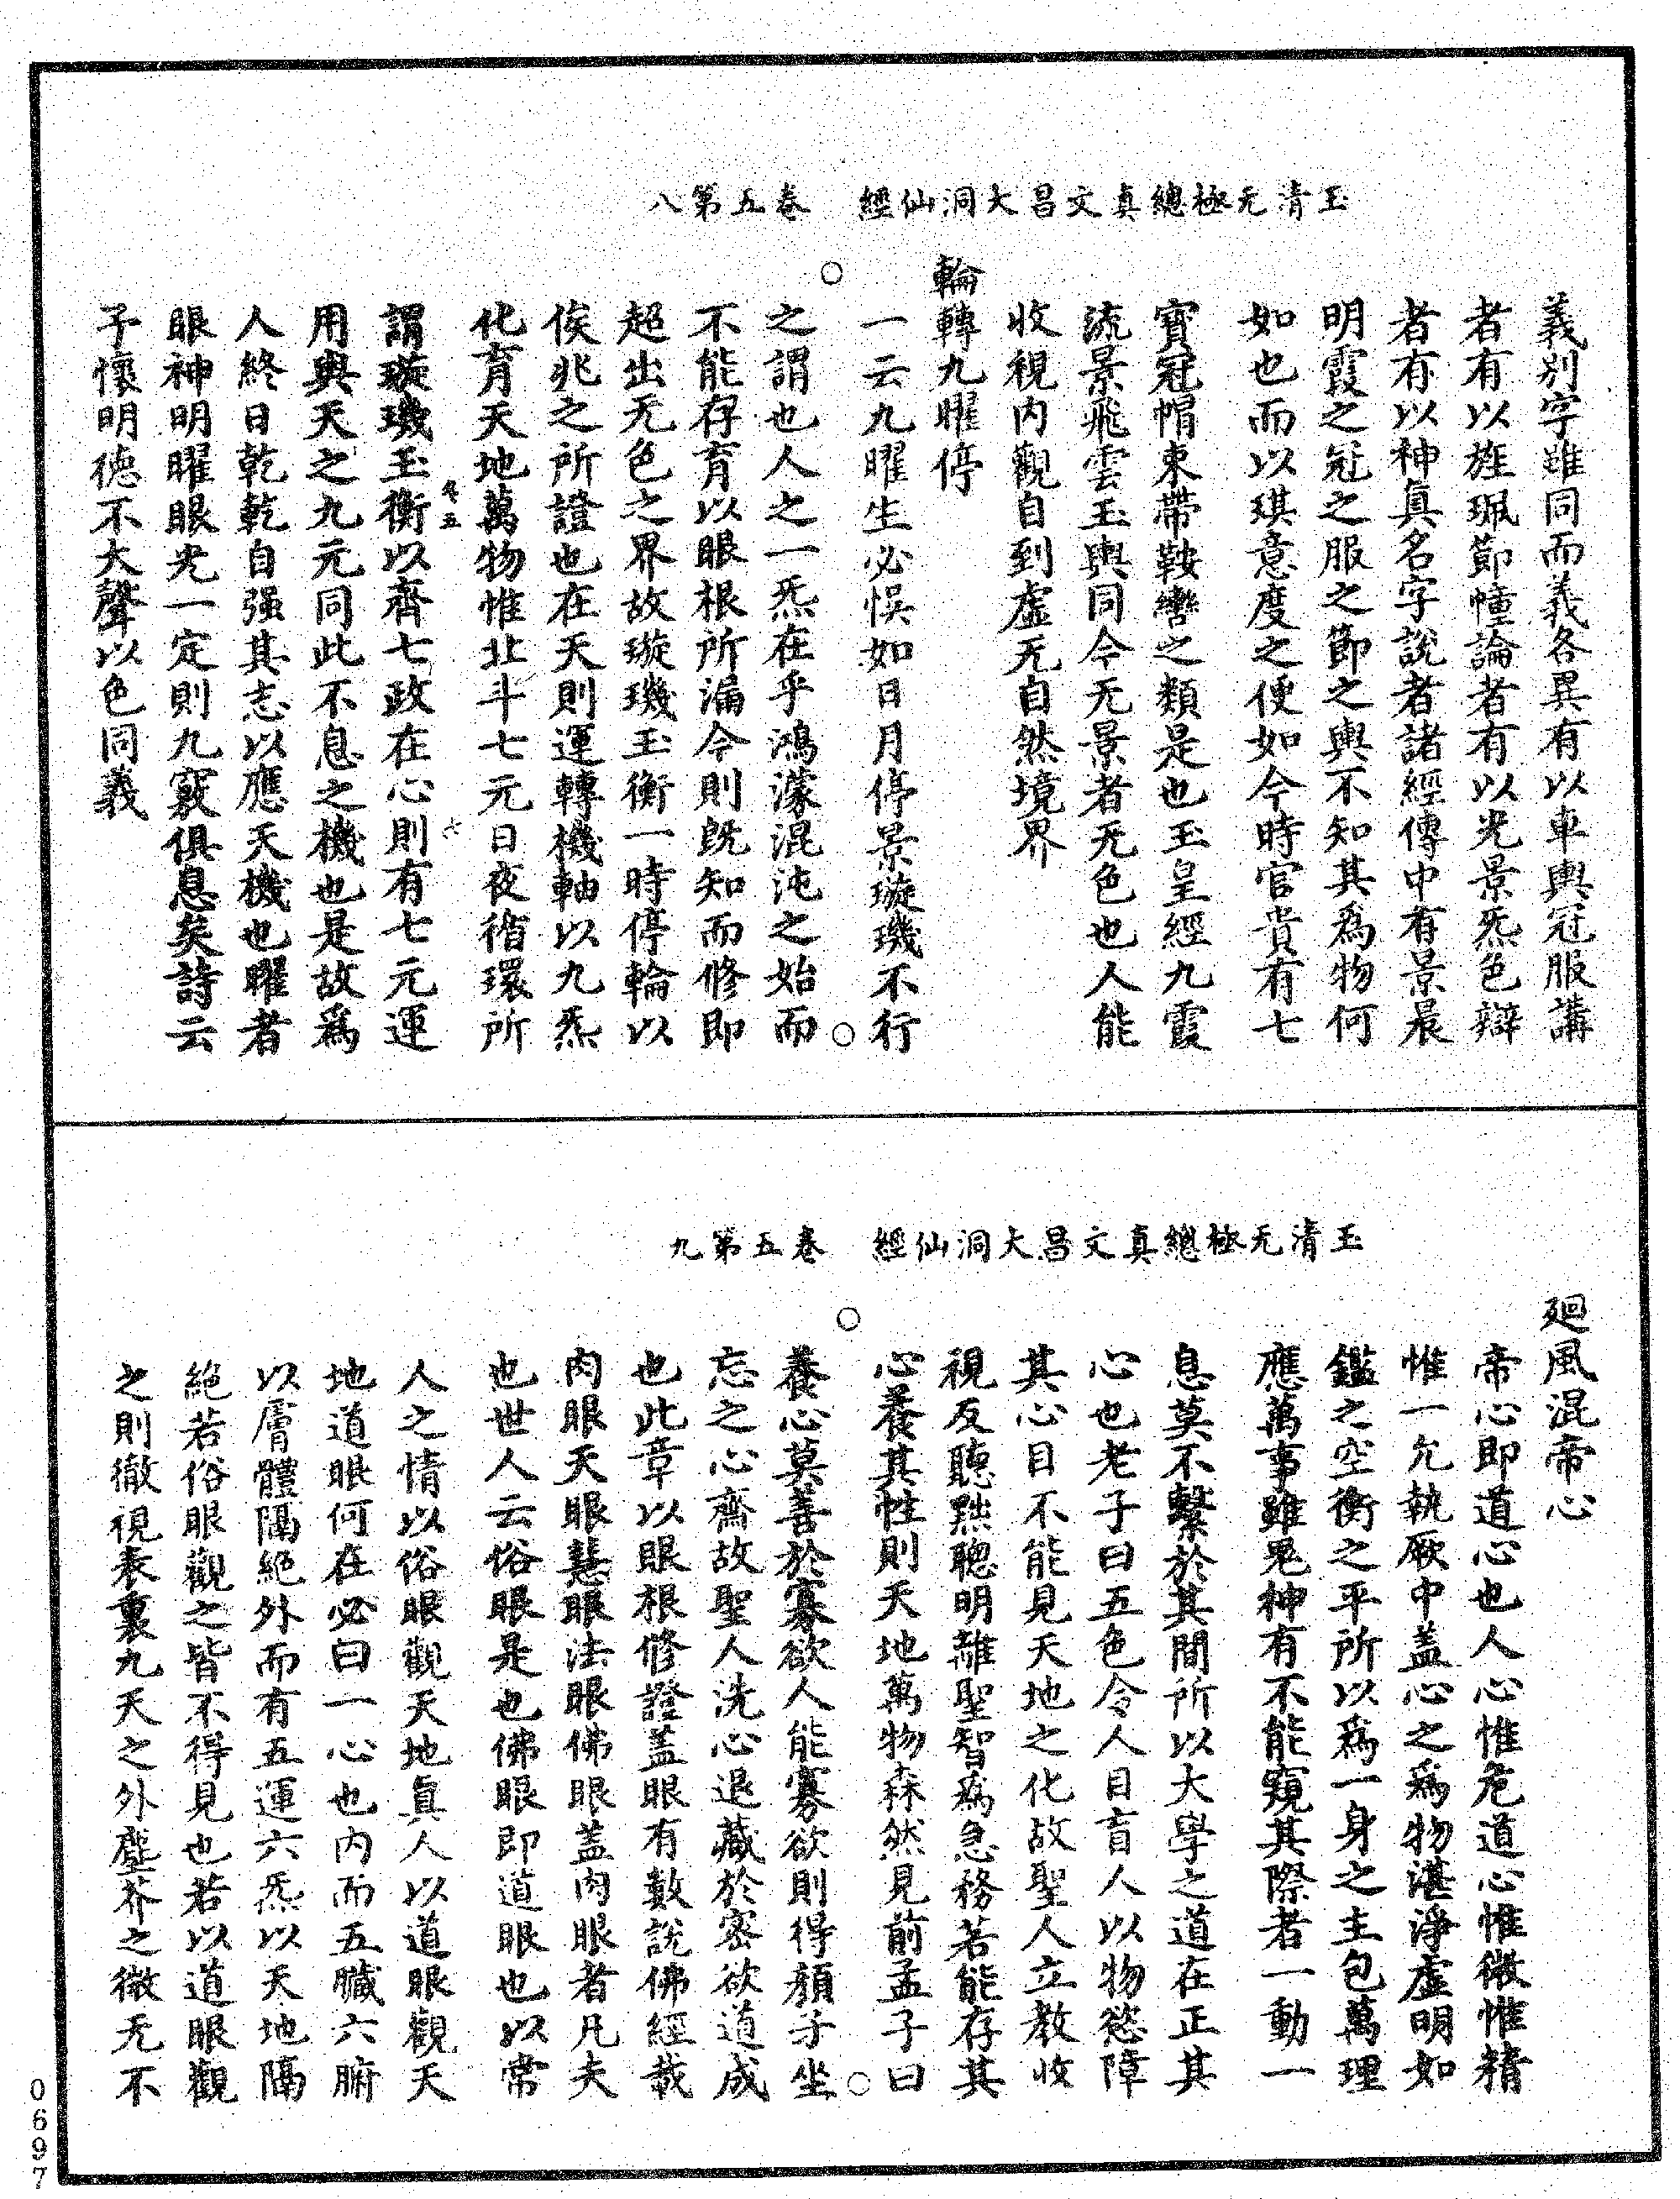 玉清无極總真文昌大洞仙經　卷五第八
義别字雖同而義各異有以車輿冠服講
者有以旌珮節幢論者有以光景炁色辯
者有以神真名字説者諸經傳中有景晨
明霞之冠之服之節之輿不知其爲物何
如也而以琪意度之便如今時官貴有七
寶冠帽束帶鞍轡之類是也玉皇經九霞
流景飛雲玉輿同今无景者无色也人能
收視内觀自到虚无自然境界
輪轉九曜停
一云九曜生必悞如日月停景璇璣不行
之謂也人之一炁在乎鴻濛混沌之始而
不能存育以眼根所漏今則既知而修即
超出无色之界故璇璣玉衡一時停輪以
俟兆之所證也在天則運轉機軸以九炁
化育天地萬物惟北斗七元日夜循環所
卷五
六
謂璇璣玉衡以齊七政在心則有七元運
用與天之九元同此不息之機也是故爲
人終日乾乾自强其志以應天機也曜者
眼神明曜眼光一定則九竅俱息矣詩云
予懷明德不大聲以色同義
玉清无極總真文昌大洞仙經　卷五第九
廻風混帝心
帝心即道心也人心惟危道心惟微惟精
惟一允執厥中盖心之爲物湛淨虚明如
鑑之空衡之平所以爲一身之主包萬理
應萬事雖鬼神有不能窺其際者一動一
息莫不繫於其間所以大學之道在正其
心也老子曰五色令人目盲人以物慾障
其心目不能見天地之化故聖人立教收
視反聽黜聰明離聖智爲急務若能存其
心養其性則天地萬物森然見前孟子曰
養心莫善於寡欲人能寡欲則得顔子坐
忘之心齋故聖人洗心退藏於密欲道成
也此章以眼根修證盖眼有數説佛經載
肉眼天眼慧眼法眼佛眼盖肉眼者凡夫
也世人云俗眼是也佛眼即道眼也以常
人之情以俗眼觀天地真人以道眼觀天
地道眼何在必曰一心也内而五臟六腑
以膚體隔絶外而有五運六炁以天地隔
絶若俗眼觀之皆不得見也若以道眼觀
之則徹視表裏九天之外塵芥之微无不
0697